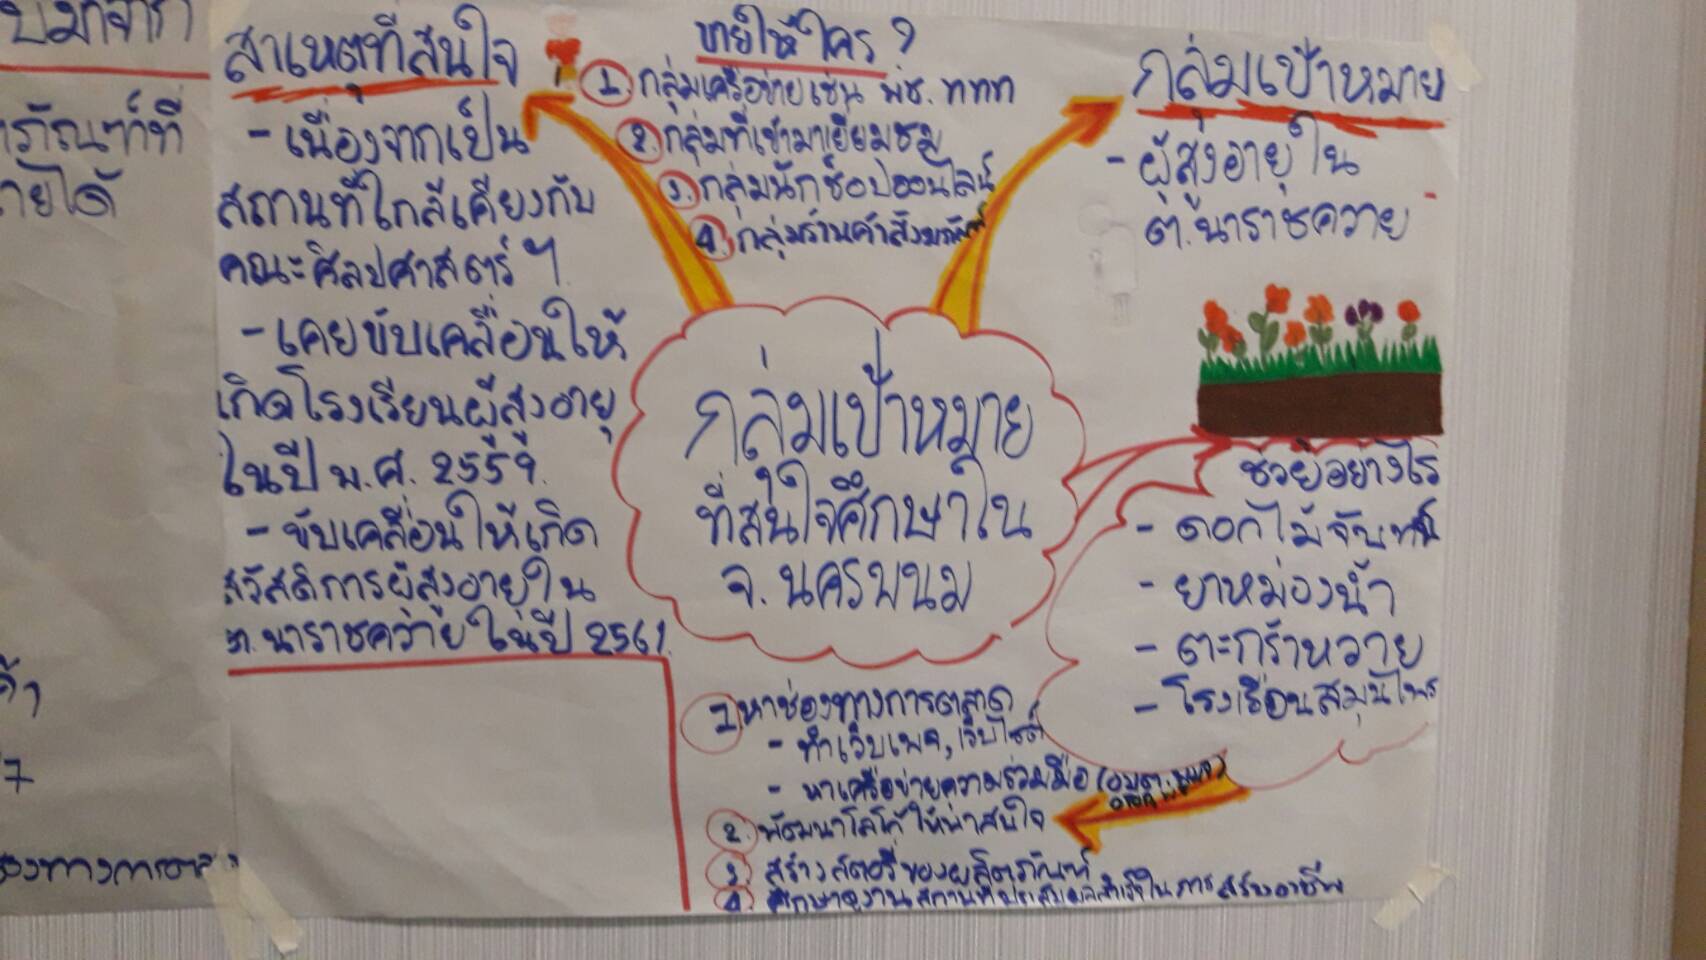 สาเหตุที่สนใจ
- เนื่องจากเป็น
สถานที่ใกล้เคียงกับ
คณะศิลปศาสตร์ ฯ
- เคยขับเคลื่อนให้
เกิดโรงเรียนผู้สูงอายุ
ในปี พ.ศ. 2559
- ขับเคลื่อนให้เกิด
สวัสดิการผู้สูงอายุใน
ต.นาราชควาย ในปี 2561
ขายให้ใคร ?
1. กลุ่มเครือข่ายเช่น พช. ททท
2. กลุ่มที่เข้ามาเยี่ยมชม
3. กลุ่มนักช็อปออนไลน์
4. กลุ่มร้านค้าสังฆภัณฑ์
กลุ่มเป้าหมาย
- ผู้สูงอายุใน
ต.นาราชควาย
กลุ่มเป้าหมาย
ที่สนใจศึกษาใน
จ.นครพนม
ช่วยอย่างไร
- ดอกไม้จันทน์
- ยาหม่องน้ำ
- ตะกร้าหวาย
- โรงเรือนสมุนไพร
1 หาช่องทางการตลาด
- ทำเว็บเพจ, เว็บไซต์
- หาเครือข่ายความร่วมมือ (อบต.
2. พัฒนาโลโก้ให้น่าสนใจ
3. สร้างสตอรี่ของผลิตภัณฑ์
4. ศึกษาดูงานสถานที่ประสบผลสำเร็จในการสร้างอาชีพ
ภัณฑ์ที่
ายได้
7